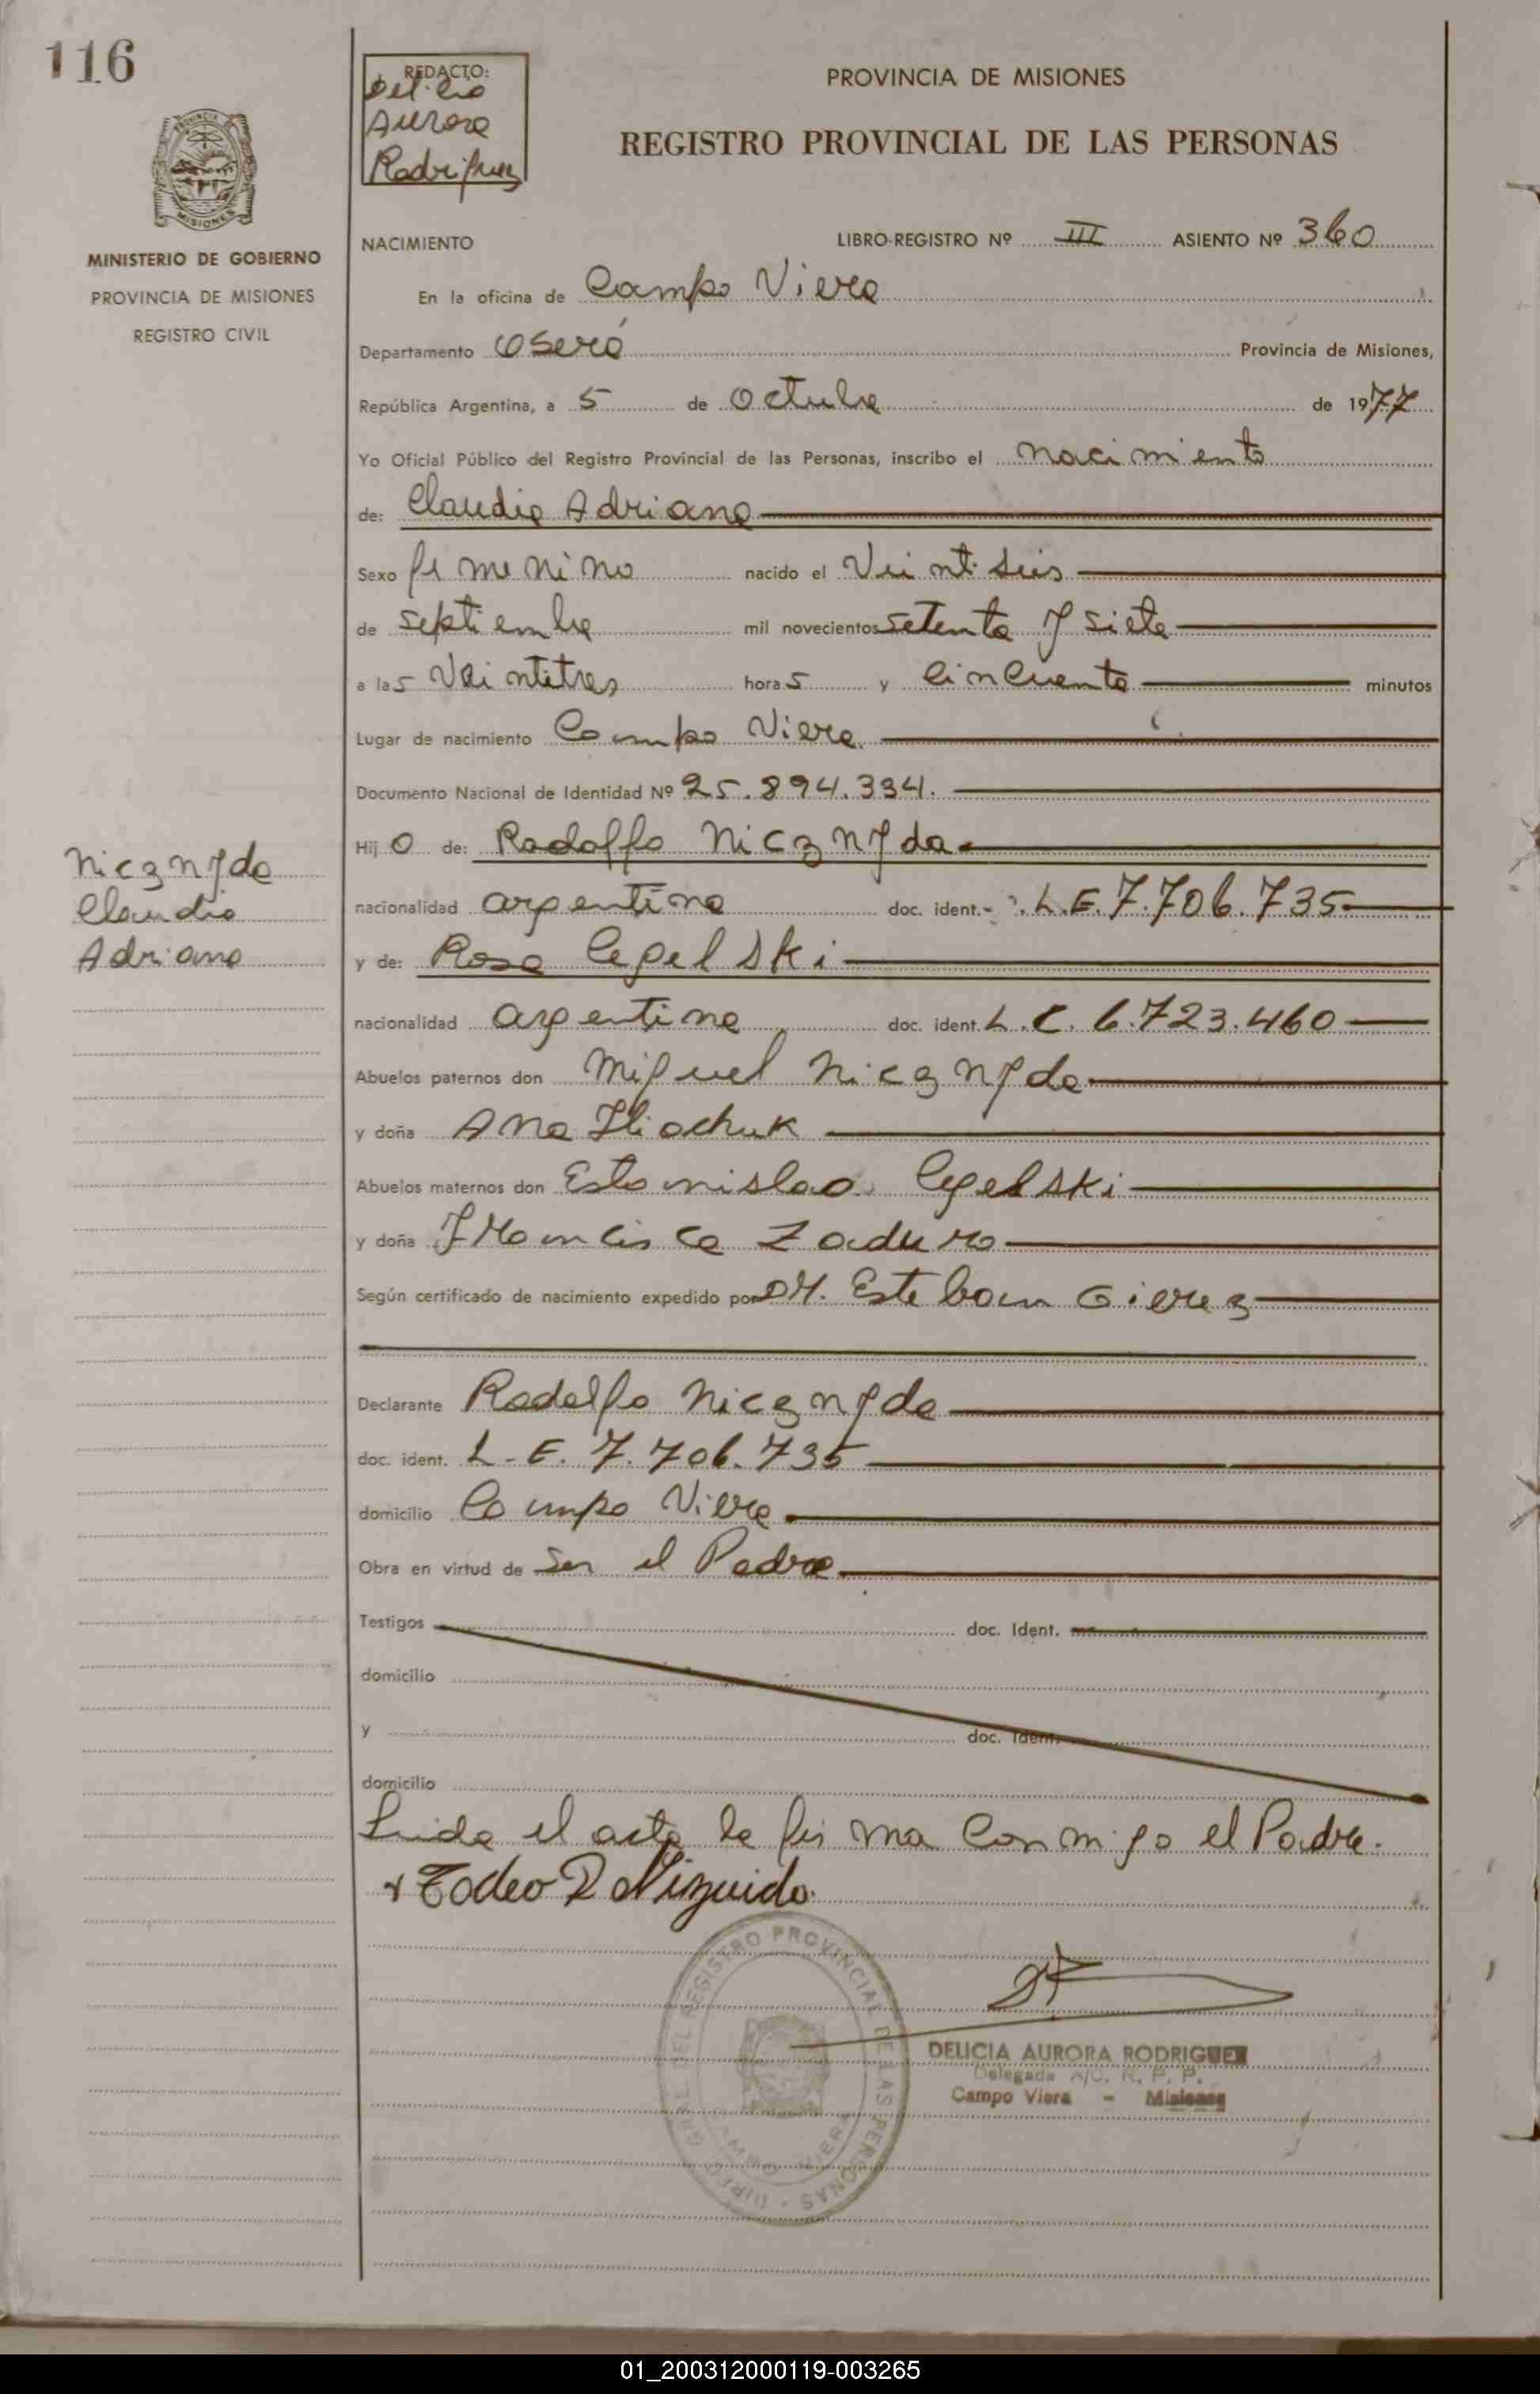 116
REDACTO:
Delicia
Aurora
Rodriguez
PROVINCIA DE MISIONES
REGISTRO PROVINCIAL DE LAS PERSONAS
MISIONES
MINISTERIO DE GOBIERNO
PROVINCIA DE MISIONES
REGISTRO CIVIL
NACIMIENTO LIBRO-REGISTRO Nº III ASIENTO Nº 360
En la oficina de Campo Viera
Departamento Oberá Provincia de Misiones,
República Argentina, a 5 de Octubre de 1977
Yo Oficial Público del Registro Provincial de las Personas, inscribo el nacimiento
de: Claudia Adriana
Sexo femenino nacido el Veintiseis
de septiembre mil novecientos setenta y siete
a las Veintitres horas y cincuenta minutos
Lugar de nacimiento Campo Viera
Documento Nacional de Identidad Nº 25.894.334.
Hijo de: Rodolfo Nicznyda
nacionalidad argentina doc. ident. L.E. 7.706.735
y de: Rosa Cegelski
nacionalidad argentina doc. ident. L.C. 6.723.460
Abuelos paternos don Miguel Nicznyda
y doña Ana Iliachuk
Abuelos maternos don Estanislao Cegelski
y doña Francisca Zaduro
Según certificado de nacimiento expedido por DR. Esteban Gierez
Nicznyda
Claudia
Adriana
Declarante Rodolfo Nicznyda
doc. ident. L.E. 7.706.735
domicilio Campo Viera
Obra en virtud de Ser el Padre
Testigos doc. Ident.
domicilio
y doc. Ident.
domicilio
Leida el acta la firma conmigo el Padre.
DELICIA AURORA RODRIGUEZ
Delegada A/C. R. P. P.
Campo Viera - Misiones
DIREC. GRAL. DEL REGISTRO PROVINCIAL DE LAS PERSONAS
CAMPO VIERA
01_200312000119-003265